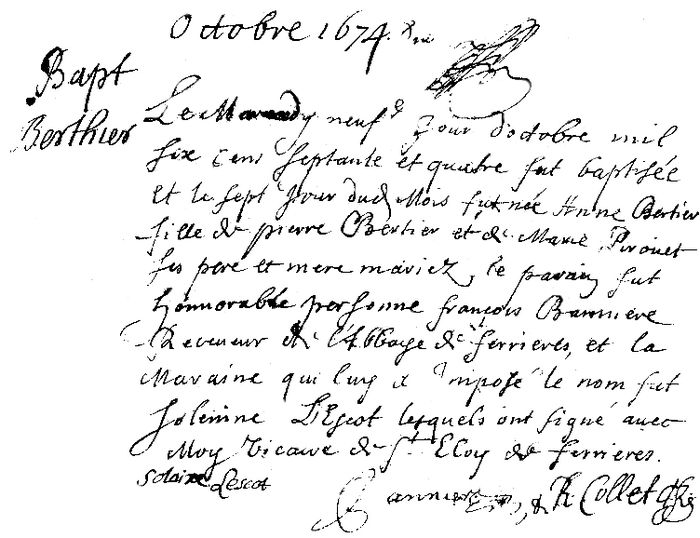 Octobre 1674.
Bapt
Berthier
Le Mardy neufe Jour d'octobre mil
six cens septante et quatre fut baptisée
et le sept Jour dud Mois fut née Anne Bertier
fille de pierre Bertier et de Marie Pirouet
ses pere et mere mariez, le parain fut
honnorable personne françois Banniere
Receveur de l'Abbaye de ferrieres, et la
Maraine qui luy a Imposé le nom fut
Solenine L'Escot lesquels ont signé avec
Moy Vicaire de St Eloy de ferrieres.
Solaine Lescot
Banniere Collet